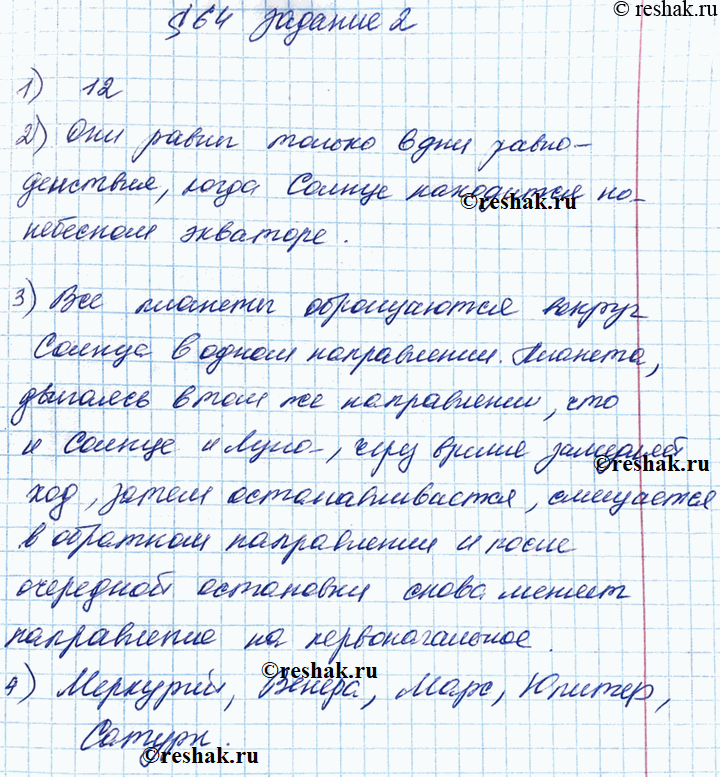 ©reshak.ru
§64 Задание 2
1) 12
2) Они равны только в дни равно-
денствия, когда Солнце находится на
©reshak.ru
небесном экваторе.
3) Все планеты обращаются вокруг
Солнца в одном направлении. Планета,
двигаясь в том же направлении, что
и Солнце и Луна, через время замедляет
©reshak.ru
ход, затем останавливается, смещается
в обратном направлении и после
очередной остановки снова меняет
направление на первоначальное.
©reshak.ru
4) Меркурий, Венера, Марс, Юпитер,
Сатурн.
©reshak.ru